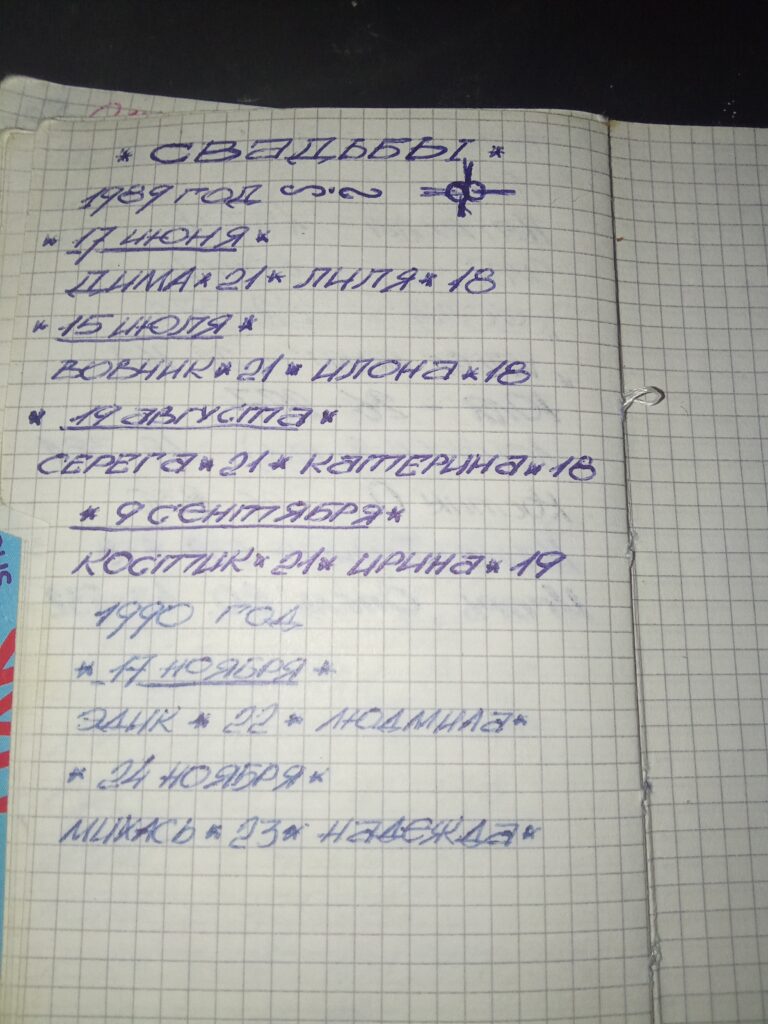 * СВАДЬБЫ *
1989 ГОД
* 17 ИЮНЯ *
ДИМА * 21 * ЛИЛЯ * 18
* 15 ИЮЛЯ *
ВОВЧИК * 21 * ИЛОНА * 18
* 19 АВГУСТА *
СЕРЕГА * 21 * КАТЕРИНА * 18
* 9 СЕНТЯБРЯ *
КОСТИК * 21 * ИРИНА * 19
1990 ГОД
* 17 НОЯБРЯ *
ЭДИК * 22 * ЛЮДМИЛА *
* 24 НОЯБРЯ *
МИХАСЬ * 23 * НАДЕЖДА *